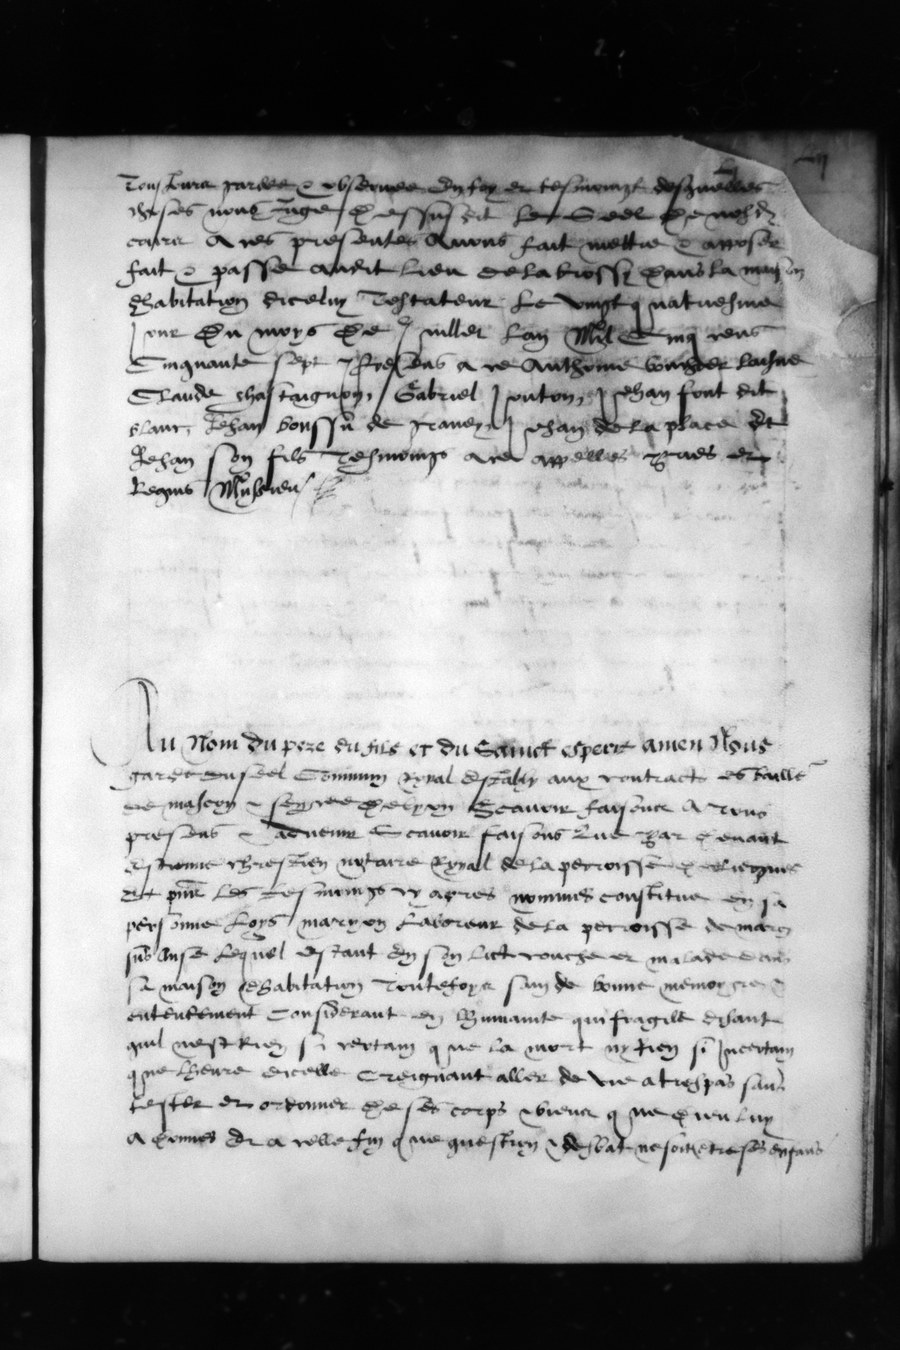 Tousjours gardee & observee En foy et tesmoingt desquelles
choses nous Juge dessusdit Le Seel de
cours A ces presentes Avons fait mettre & apposer
fait & passe audit Lieu de la dans la maison
dhabitation dicelluy Testateur Le vingt quatriesme
Jour Du moys De Juillet Lan Mil Cinq cens
Cinquante sept Presens a ce Anthoine laisne
Claude chastaignon, Gabriel Jouton, Jehan font dit
blanc, Jehan de Jehan de la place Et
Jehan son fils Tesmoings a ce appelles et
Requis
Au Nom du pere du fils et du Sainct esperit amen Nous
garde du seel Commun Royal estably aux contractz es baille
de mascon & de lyon Scavoir faisons A Tous
presens & advenir Scavoir faisons Que Par devant
chrestien notaire Royal de la perroisse de
Et Les Tesmoings cy apres nommes constitue en sa
personne Loys maryon Laboreur de la perroisse de marcy
sus Anse Lequel Estant En son lict couche et malade dans
sa maison dhabitation Touteffoys sain de bonne memoyre &
entendement Considerant en humanite qui fragile disant
quil nest Rien si certain que la mort ny Rien si Incertain
que lheure dicelle Creignant aller de vie a trespas sans
tester et ordonner De ses corps & biens que Dieu luy
a donnes Et a celle fin que question & debat ne soit entre ses enfans